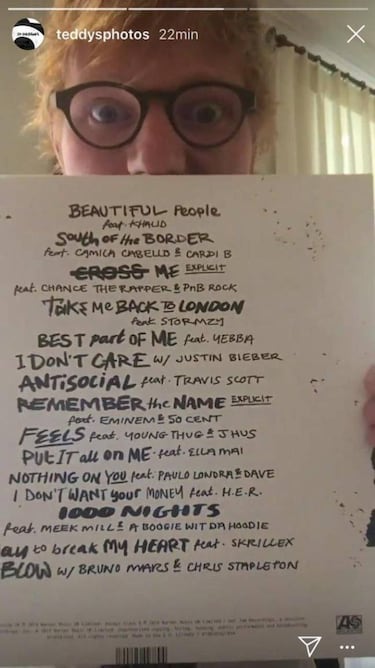 teddysphotos 22min
BEAUTIFUL People
feat. KHALID
South OF the BORDER
feat. CAMILA CABELLO & CARDI B
CROSS ME EXPLICIT
feat. CHANCE THE RAPPER & PnB ROCK
TAKE Me BACK to LONDON
feat. STORMZY
BEST part OF ME feat. YEBBA
I DON'T CARE W/ JUSTIN BIEBER
ANTISOCIAL feat. TRAVIS SCOTT
REMEMBER the NAME EXPLICIT
feat. EMINEM & 50 CENT
FEELS feat. YOUNG THUG & J HUS
PUT IT all on ME. feat. ELLA MAI
NOTHING ON YOU feat. PAULO LONDRA & DAVE
I DON'T WANT your MONEY feat. H.E.R.
1000 NIGHTS
feat. MEEK MILL & A BOOGIE WIT DA HOODIE
ay to break MY HEART feat. SKRILLEX
BLOW W/ BRUNO MARS & CHRIS STAPLETON